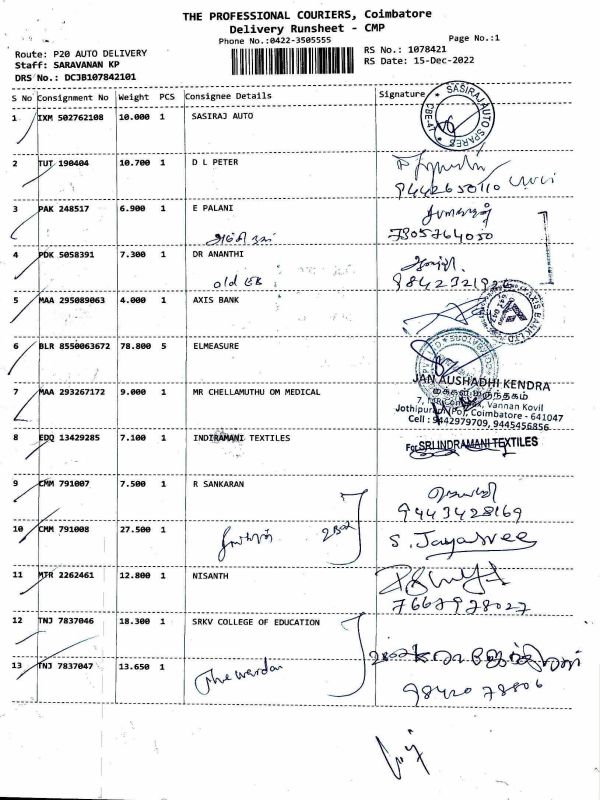 THE PROFESSIONAL COURIERS, Coimbatore
Delivery Runsheet - CMP
Phone No.:0422-3505555
Page No.:1
Route: P20 AUTO DELIVERY
RS No.: 1078421
Staff: SARAVANAN KP
RS Date: 15-Dec-2022
DRS No.: DCJB107842101
S No Consignment No Weight PCS Consignee Details Signature
1 IXM 502762108 10.000 1 SASIRAJ AUTO
SASIRAJ AUTO SPARES
CBE-47
2 TUT 190404 10.700 1 D L PETER
9442650110
3 PAK 248517 6.900 1 E PALANI
7305764050
4 PDK 5058391 7.300 1 DR ANANTHI
old GB
5 MAA 295089063 4.000 1 AXIS BANK
AXIS BANK LTD
6 BLR 8550063672 78.800 5 ELMEASURE
7 MAA 293267172 9.000 1 MR CHELLAMUTHU OM MEDICAL
JAN AUSHADHI KENDRA
மக்கள் மருந்தகம்
Vannan Kovil
Jothipuram (Po), Coimbatore - 641047
Cell : 9442979709, 9445456856
8 EDQ 13429285 7.100 1 INDIRAMANI TEXTILES
For SRI INDRAMANI TEXTILES
9 CMM 791007 7.500 1 R SANKARAN
9443428169
10 CMM 791008 27.500 1
S. Jayasree
11 MTR 2262461 12.800 1 NISANTH
7667978027
12 TNJ 7837046 18.300 1 SRKV COLLEGE OF EDUCATION
13 TNJ 7837047 13.650 1
The warden
98420 78806